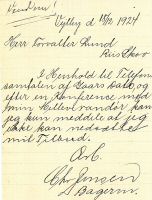 Vejlby d 15/10 1924
Herr Forvalter Lund
Riis Skov
I Henhold til Telefon
samtalen af Gaars Dato, og
efter en Conference med
min Mellemhandler kan
jeg kun meddele at jeg
ikke kan nedsætte
mit Tilbud.
Chr Jensen
Bagerm.